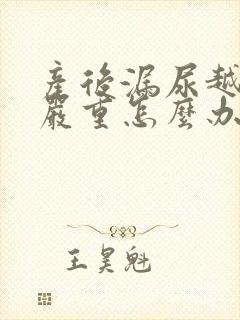 產後漏尿越
嚴重怎麼办
王昊魁